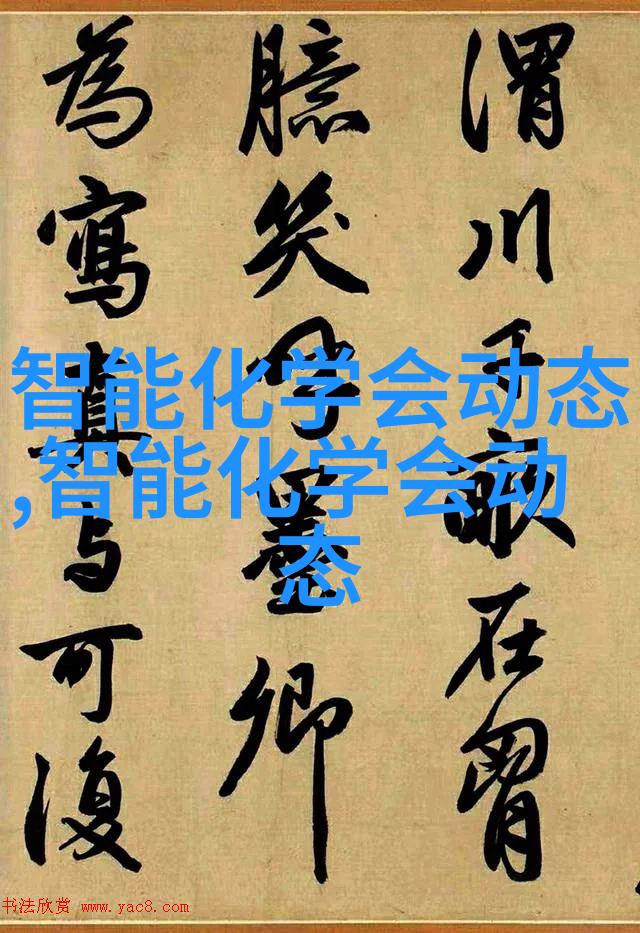 渭川千畝在胷
臆笑呼墨卿
為寫真与可復
智能化学会动态
,智能化学会动
态
书法欣赏 www.yac8.com